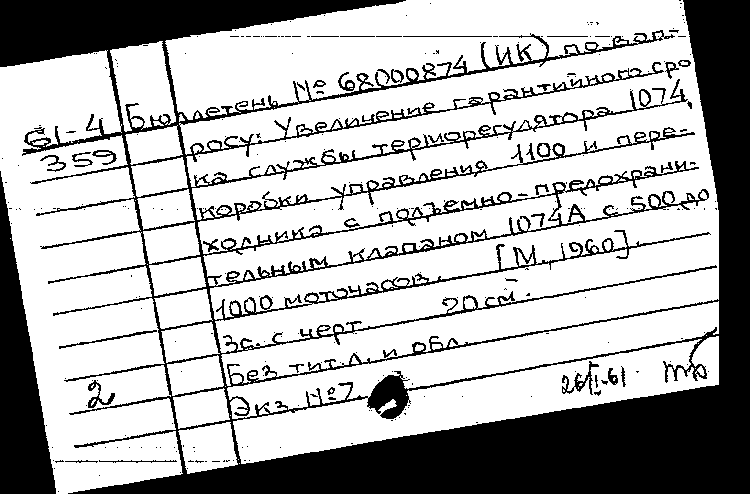 61-4 Бюллетень № 68000874 (ИК) по воп-
359 росу: Увеличение гарантийного сро
ка службы терморегулятора 1074,
коробки управления 1100 и пере-
ходника с подъемно-предохрани-
тельным клапаном 1074А с 500 до
1000 моточасов. [М., 1960].
3с. с черт. 20 см.
Без тит. л. и обл.
2 Экз. №7. 26/I-61